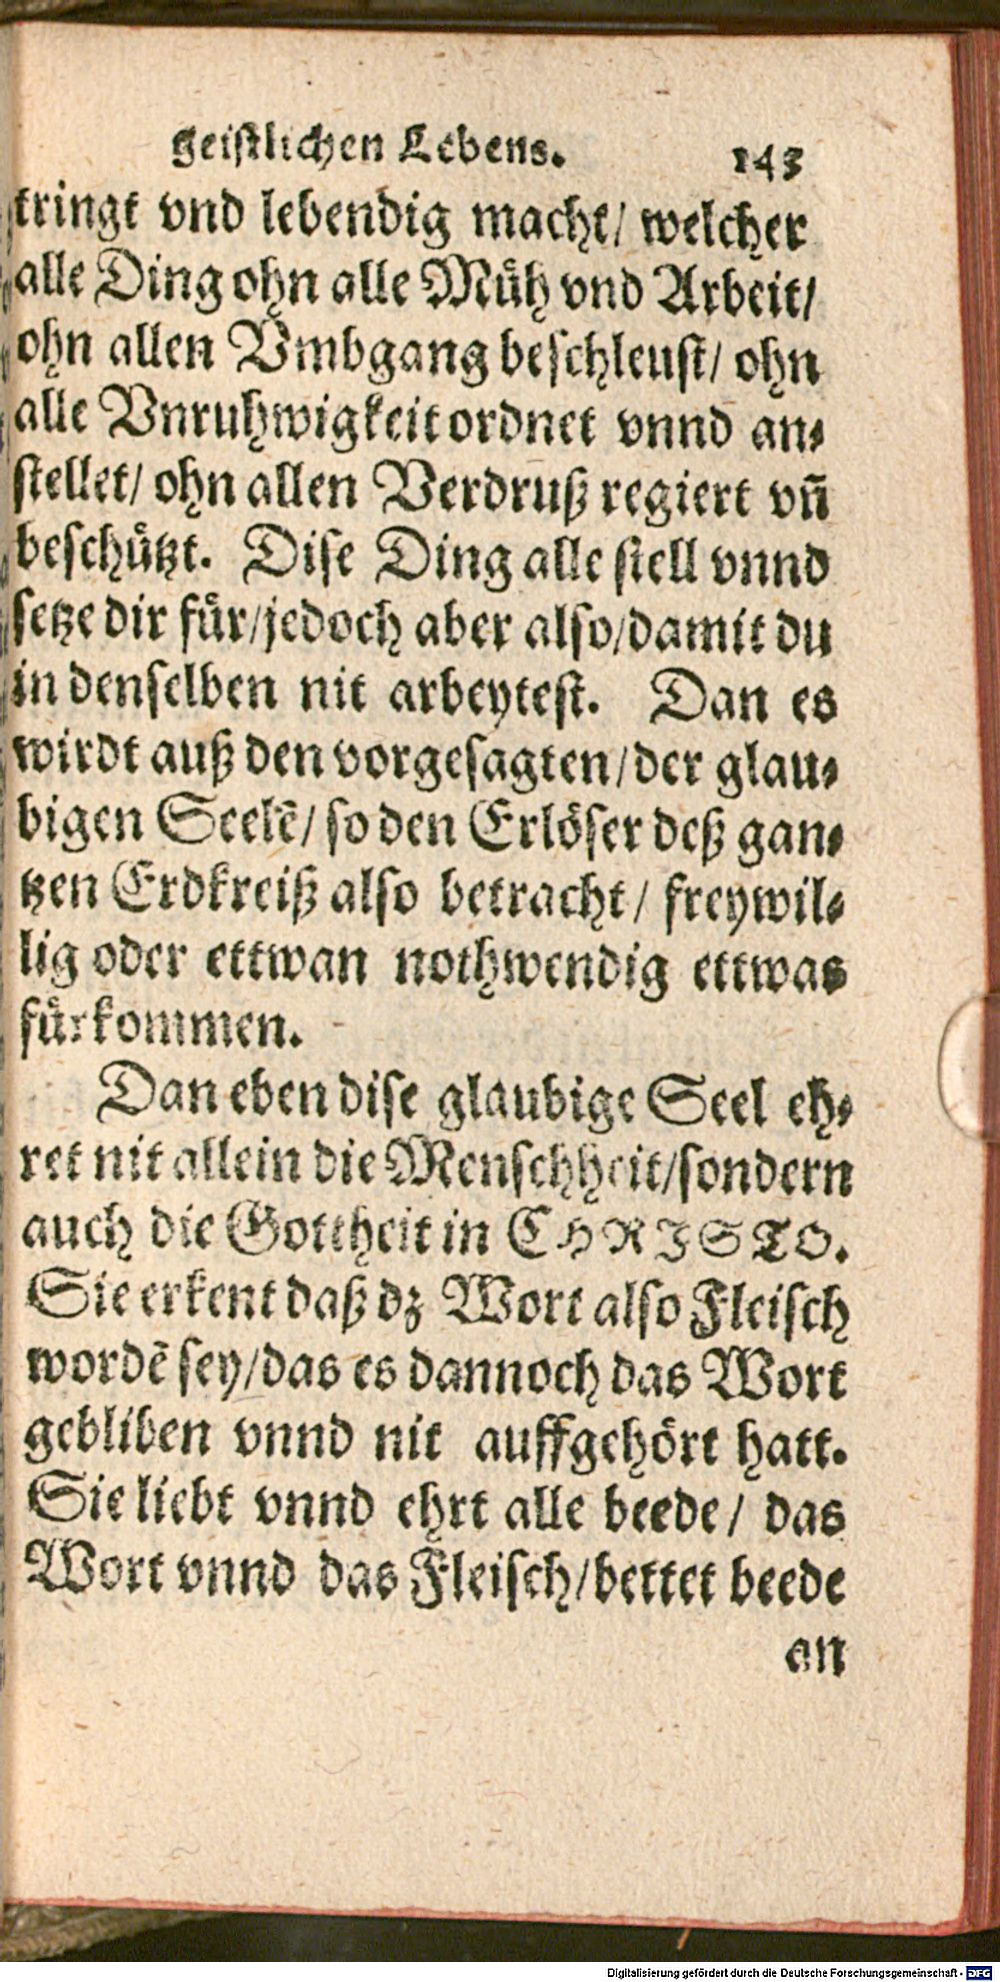 geistlichen Lebens. 143
tringt vnd lebendig macht/ welcher
alle Ding ohn alle Müh vnd Arbeit/
ohn allen Vmbgang beschleust/ ohn
alle Vnruhwigkeit ordnet vnnd an-
stellet/ ohn allen Verdruß regiert vn̄
beschützt. Dise Ding alle stell vnnd
setze dir für/jedoch aber also/damit du
in denselben nit arbeytest. Dan es
wirdt auß den vorgesagten/der glau-
bigen Seelē/ so den Erlöser deß gan-
tzen Erdkreiß also betracht/ freywil-
lig oder ettwan nothwendig ettwas
fürkommen.
Dan eben dise glaubige Seel eh-
ret nit allein die Menschheit/sondern
auch die Gottheit in CHRISTO.
Sie erkent daß dz Wort also Fleisch
wordē sey/das es dannoch das Wort
gebliben vnnd nit auffgehört hatt.
Sie liebt vnnd ehrt alle beede/ das
Wort vnnd das Fleisch/bettet beede
an
Digitalisierung gefördert durch die Deutsche Forschungsgemeinschaft - DFG